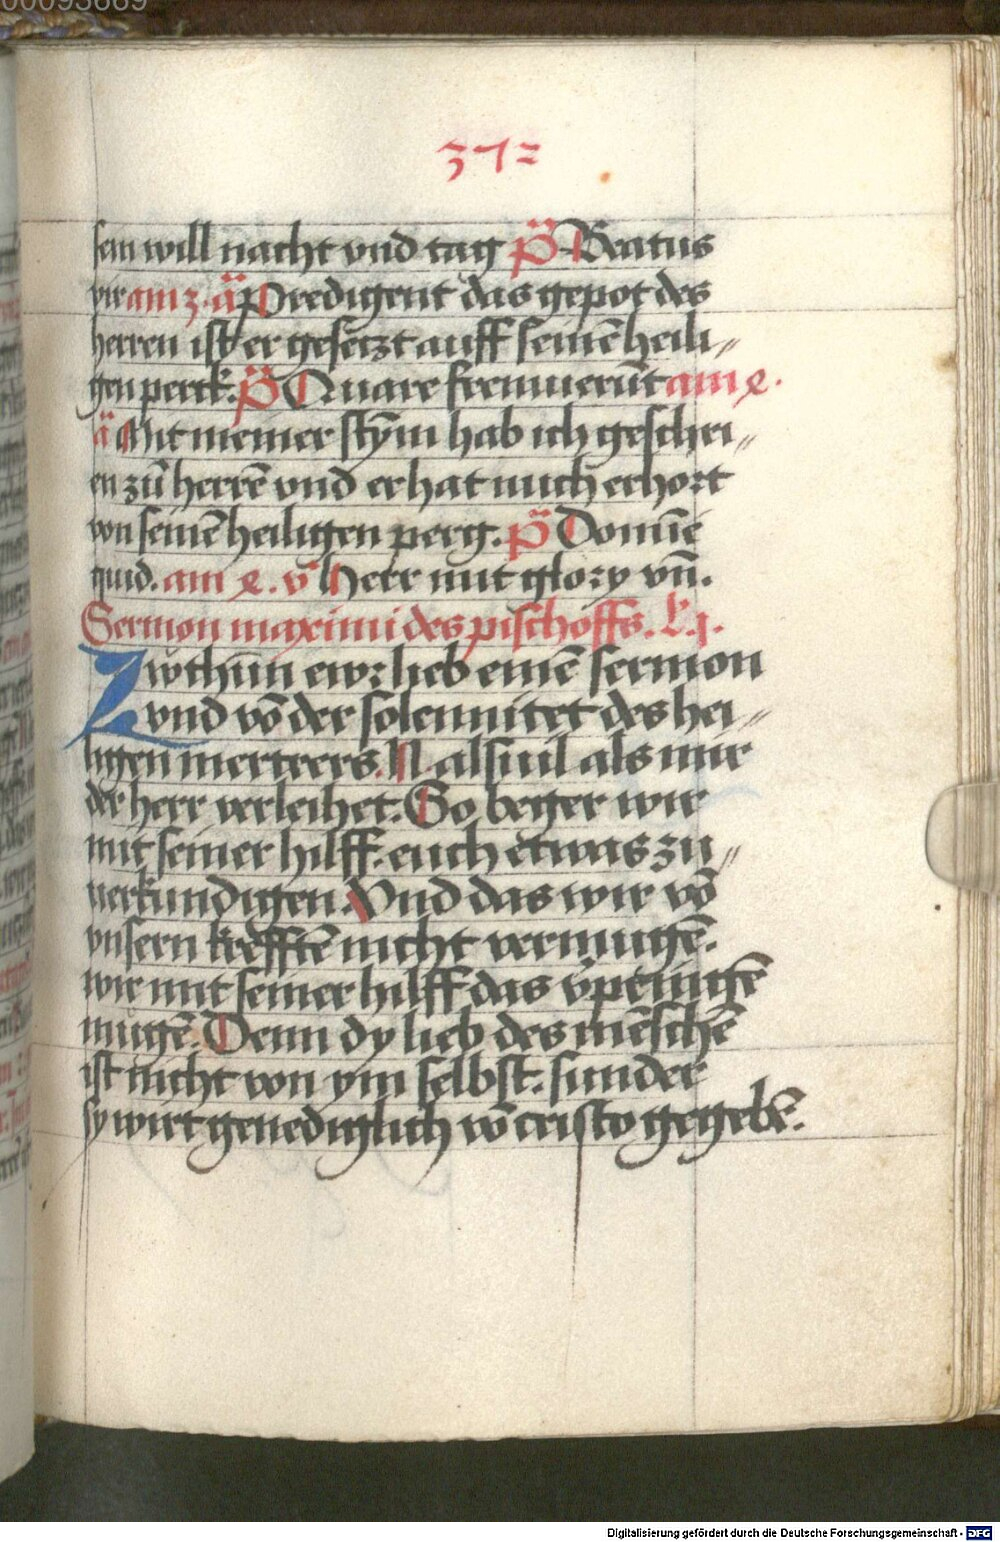 00093669
372
sein will nacht vnd tag p̈s Beatus
vir am 3. ä Predigent das gepot des
herren ist er gesetzt auff seinē heili〃
gen perck. p̈s Quare fremuerūt am 2.
ä Mit meiner stym̄ hab ich geschri〃
en zū herrē vnd er hat mich erhort
von seinē heiligen perg. p̈s Domīe
quid. am 2. v̄ Herr mit glory vn̄.
Sermon maximi des pischoffs. L. j.
Zwthūn ewr lieb einē sermon
vnd vō der solennitet des hei〃
ligen merterers. N. alsuil als mir
der herr verleihet. So beger wir
mit seiner hilff. euch etwas zu〃
uerkundigen. Vnd das wir vō
vnsern krefftē nicht vermugē.
wir mit seiner hilff das v̈pringē
mugē. Denn dy lieb des mēschē
ist nicht von ym selbst: sunder
sy wirt genediglich vō cristo gegebē.
Digitalisierung gefördert durch die Deutsche Forschungsgemeinschaft - DFG